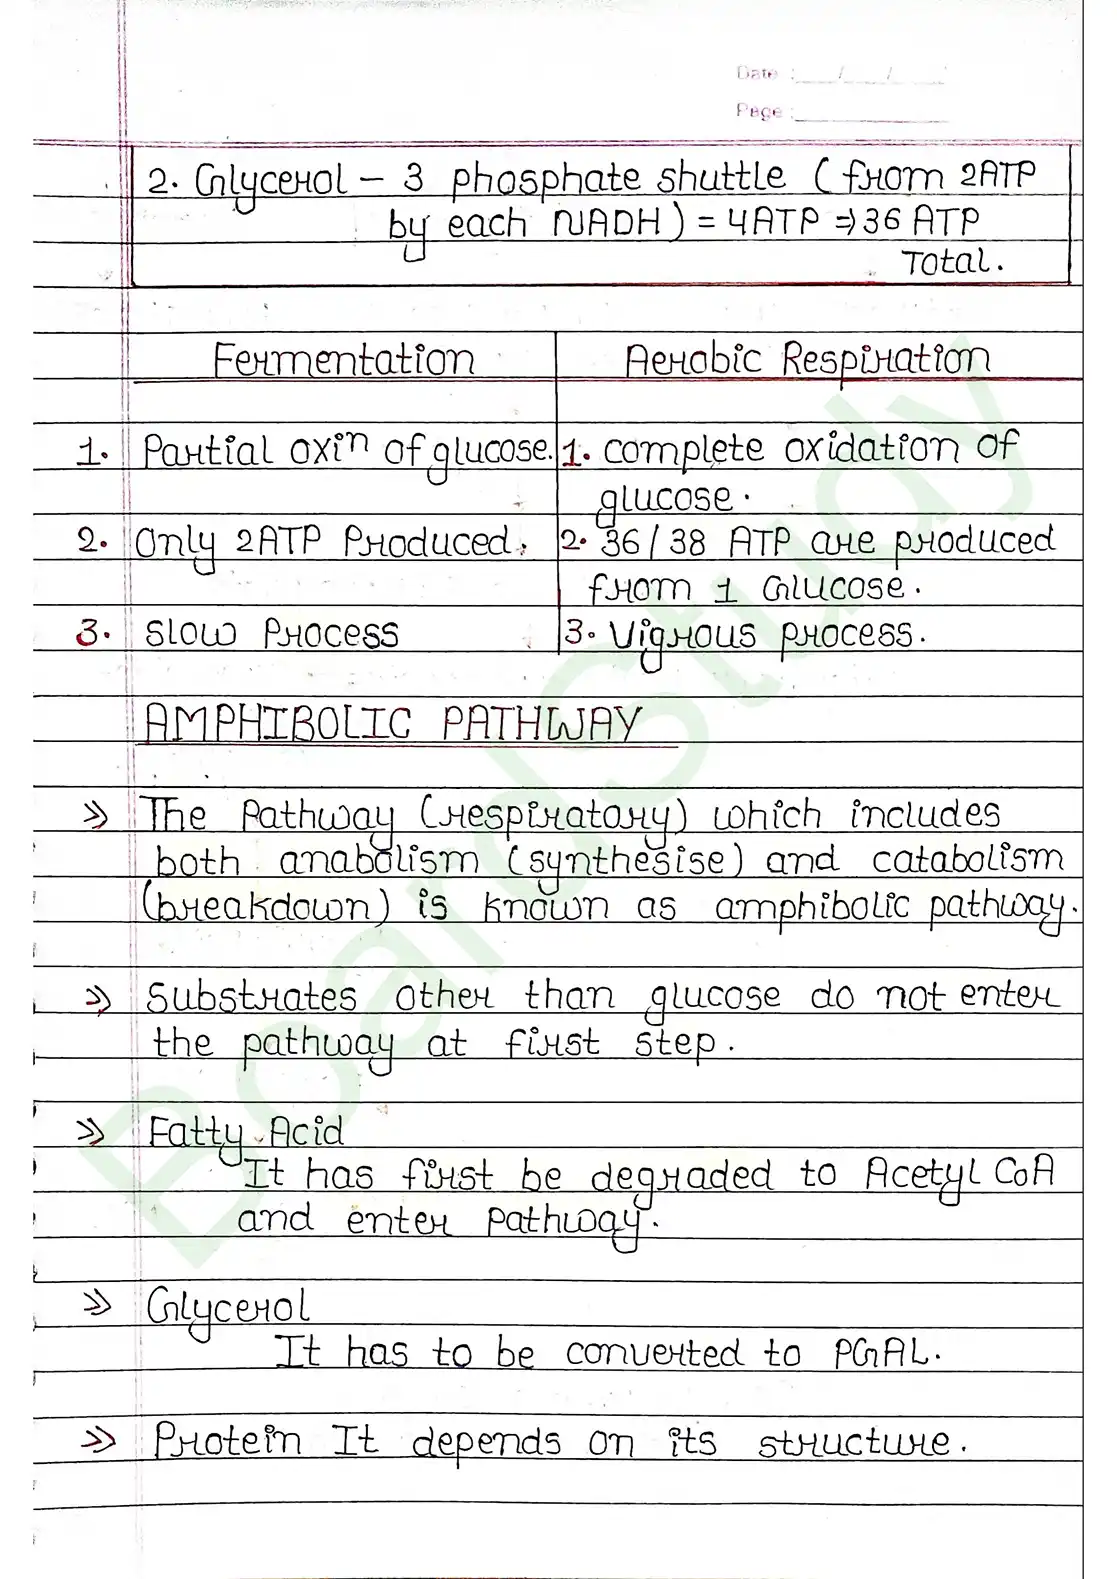 Date : / /
Page :
2. Glycerol - 3 phosphate shuttle (from 2ATP
by each NADH) = 4ATP ⇒ 36 ATP
Total.
Fermentation
Aerobic Respiration
1. Partial oxiⁿ of glucose.
1. complete oxidation of
glucose.
2. Only 2ATP Produced.
2. 36 / 38 ATP are produced
from 1 Glucose.
3. Slow Process
3. Vigrous process.
AMPHIBOLIC PATHWAY
» The Pathway (respiratory) which includes
both anabolism (synthesise) and catabolism
(breakdown) is known as amphibolic pathway.
» Substrates other than glucose do not enter
the pathway at first step.
» Fatty Acid
It has first be degraded to Acetyl CoA
and enter pathway.
» Glycerol
It has to be converted to PGAL.
» Protein It depends on its structure.
BoardStudy